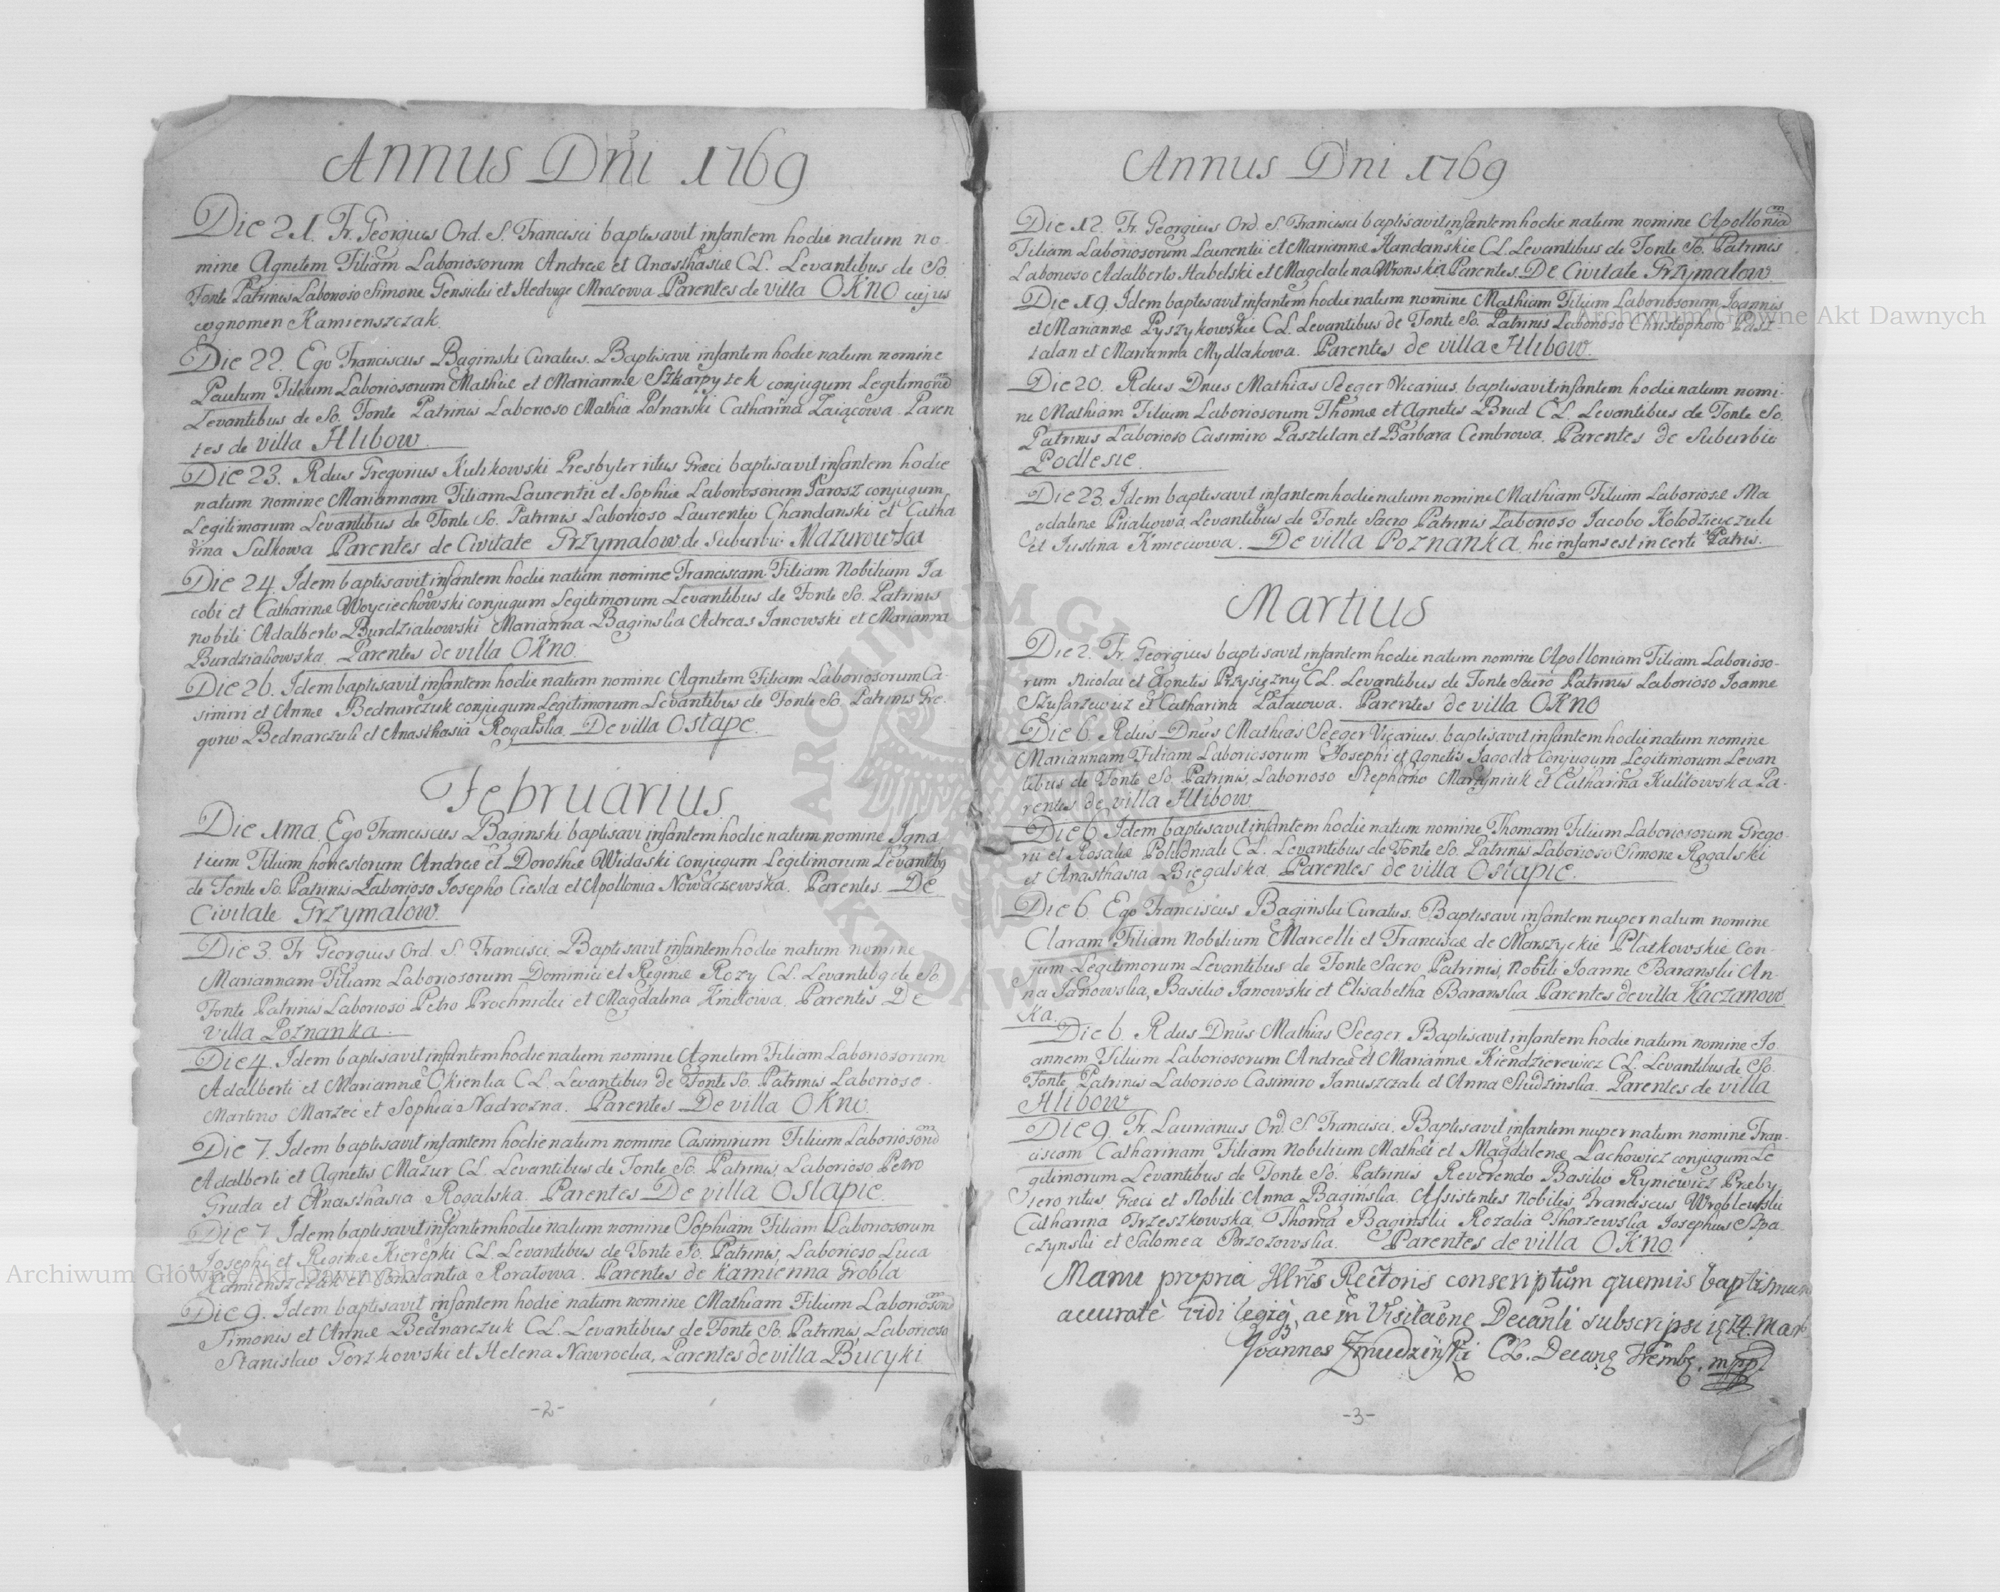 Annus Dni 1769
Die 21. Fr. Georgius Ord. S. Francisci baptisavit infantem hodie natum no-
mine Agnetem Filiam Laboriosorum Andreæ et Anasthasiæ CL. Levantibus de So
Fonte Patrinis Laborioso Simone Gensicki et Hedvige Mrozowa Parentes de villa OKNO cujus
cognomen Kamienszczak.
Die 22. Ego Franciscus Baginski Curatus. Baptisavi infantem hodie natum nomine
Paulum Filium Laboriosorum Mathiæ et Mariannæ Szkarpytek conjugum Legitimorū
Levantibus de So. Fonte Patrinis Laborioso Mathia Polnarski Catharina Zaiącowa. Paren
tes de villa Hlibow
Die 23. Rdus Gregorius Kulikowski Presbyter ritus Græci baptisavit infantem hodie
natum nomine Mariannam Filiam Laurentii et Sophiæ Laboriosorum Jarosz conjugum
Legitimorum Levantibus de Fonte So. Patrinis Laborioso Laurentio Chandanski et Catha
rina Sulkowa Parentes de Civitate Grzymalow de Suburbio Mazurowka
Die 24. Idem baptisavit infantem hodie natum nomine Franciscam Filiam Nobilium Ja
cobi et Catharinæ Woyciechowski conjugum Legitimorum Levantibus de Fonte So. Patrinis
nobili Adalberto Burdziakowski Marianna Baginska Adreas Janowski et Marianna
Burdziakowska. Parentes de villa OKno
Die 26. Idem baptisavit infantem hodie natum nomine Agnetem Filiam Laboriosorum Ca-
simiri et Annæ Bednarczuk conjugum Legitimorum Levantibus de Fonte So. Patrinis Gre-
gorio Bednarczuk et Anasthasia Rogalska. De villa Ostapie.
Februarius
Die 1ma. Ego Franciscus Baginski baptisavi infantem hodie natum nomine Igna
tium Filium honestorum Andreæ et Dorotheæ Widaski conjugum Legitimorum Levantibq
de Fonte So. Patrinis Laborioso Josepho Ciesla et Apollonia Nowaczewska. Parentes. De
Civitate Grzymalow.
Die 3. Fr Georgius Ord. S. Francisci. Baptisavit infantem hodie natum nomine
Mariannam Filiam Laboriosorum Dominici et Reginæ Rozy CL. Levantibq de So
Fonte Patrinis Laborioso Petro Prochnicki et Magdalena Kmitowa. Parentes De
Villa Poznanka.
Die 4. Idem baptisavit infantem hodie natum nomine Agnetem Filiam Laboriosorum
Adalberti et Mariannæ Okienka CL. Levantibus de Fonte So. Patrinis Laboriose
Martino Marzec et Sophia Nadrozna. Parentes De villa OKno.
Die 7. Idem baptisavit infantem hodie natum nomine Casimirum Filium Laboriosorū
Adalberti et Agnetis Mazur CL. Levantibus de Fonte So. Patrinis Laborioso Petro
Gruda et Anasthasia Rogalska. Parentes De villa Ostapie.
Die 7. Idem baptisavit infantem hodie natum nomine Sophiam Filiam Laboriosorum
Josephi et Reginæ Kierepki CL. Levantibus de Fonte So. Patrinis Laborioso Luca
Kamienszczak et Constantia Koratowa. Parentes de Kamienna Grobla
Die 9. Idem baptisavit infantem hodie natum nomine Mathiam Filium Laboriosorū
Simonis et Annæ Bednarczuk CL. Levantibus de Fonte So. Patrinis Laborioso
Stanislao Gorzkowski et Helena Nawrocka. Parentes de villa Bucyki
-2-
Annus Dni 1769
Die 12. Fr. Georgius Ord. S. Francisci baptisavit infantem hodie natum nomine Apolloniam
Filiam Laboriosorum Laurentii et Mariannæ Handanskie CL. Levantibus de Fonte So. Patrinis
Laborioso Adalberto Habelski et Magdalena Wronska Parentes. De Civitate Grzymalow.
Die 19. Idem baptisavit infantem hodie natum nomine Mathiam Filium Laboriosorum Joannis
et Mariannæ Pyszykowskie CL. Levantibus de Fonte So. Patrinis Laborioso Christophoro Pasz
talan et Marianna Mydlakowa. Parentes de villa Hlibow.
Die 20. Rdus Dnus Mathias Seeger Vicarius. baptisavit infantem hodie natum nomi-
ne Mathiam Filium Laboriosorum Thomæ et Agnetis Brud CL. Levantibus de Fonte So.
Patrinis Laborioso Casimiro Paszletan et Barbara Cembrowa. Parentes de Suburbio
Podlesie.
Die 23 Idem baptisavit infantem hodie natum nomine Mathiam Filium Laboriosæ Ma
gdalenæ Piiakowa, Levantibus de Fonte Sacro Patrinis Laborioso Jacobo Kolodzieyczuk
et Justina Kmieciowa. De villa Poznanka, hic infans est incerti Patris.
Martius
Die 2. Fr. Georgius baptisavit infantem hodie natum nomine Apolloniam Filiam Laborioso-
rum Nicolai et Agnetis Przysiężny CL. Levantibus de Fonte Sacro Patrinis Laborioso Joanne
Szafarzewicz et Catharina Pałacowa. Parentes de villa OKNO
Die 6. Rdus Dnus Mathias Seeger Vicarius. baptisavit infantem hodie natum nomine
Mariannam Filiam Laboriosorum Josephi et Agnetis Jagoda Conjugum Legitimorum Levan
tibus de Fonte So. Patrinis Laborioso Stephano Martyniuk et Catharina Kulitowska Pa-
rentes de villa Hlibow
Die 6. Idem baptisavit infantem hodie natum nomine Thomam Filium Laboriosorum Grego-
rii et Rosaliæ Poludniak CL. Levantibus de Fonte So. Patrinis Laborioso Simone Rogalski
et Anasthasia Biegalska. Parentes de villa Ostapie.
Die 6. Ego Franciscus Baginski Curatus. Baptisavi infantem nuper natum nomine
Claram Filiam Nobilium Marcelli et Franciscæ de Marszyckie Platkowskie Con-
jum Legitimorum Levantibus de Fonte Sacro Patrinis, Nobili Joanne Baranski An-
na Janowska, Basilio Janowski et Elisabetha Baranska Parentes de villa Kaczanow
Ka.
Die 6. Rdus Dnus Mathias Seeger. Baptisavit infantem hodie natum nomine Jo
annem Filium Laboriosorum Andreæ et Mariannæ Kiendzierewicz CL. Levantibus de So.
Fonte Patrinis Laborioso Casimiro Januszczak et Anna Studzinska. Parentes de villa
Hlibow
Die 9. Fr. Laurianus Ord. S Francisci. Baptisavit infantem nuper natum nomine Fran-
ciscam Catharinam Filiam Nobilium Mathæi et Magdalenæ Lachowicz conjugum Le
gitimorum Levantibus de Fonte So. Patrinis Reverendo Basilio Ryniewicz Presby
tero ritus Græci et Nobili Anna Baginska. Assistentes Nobiles Franciscus Wroblewski
Catharina Trzeszkowska. Thoma Baginski Rozalia Thorzewska Josephus Szpa
czynski et Salomea Brzozowska. Parentes de villa OKNO.
Manu propria Illris Rectoris conscriptum quemvis baptisman
accurate vidi legiq, ac in Visitaõne Decanli subscripsi 14. Mar
Joannes Zmudzinski CL. Decanq Tremb. mpp
-3-
Archiwum Główne Akt Dawnych
Archiwum Główne Akt Dawnych
ARCHIWUM GŁÓWNE AKT DAWNYCH